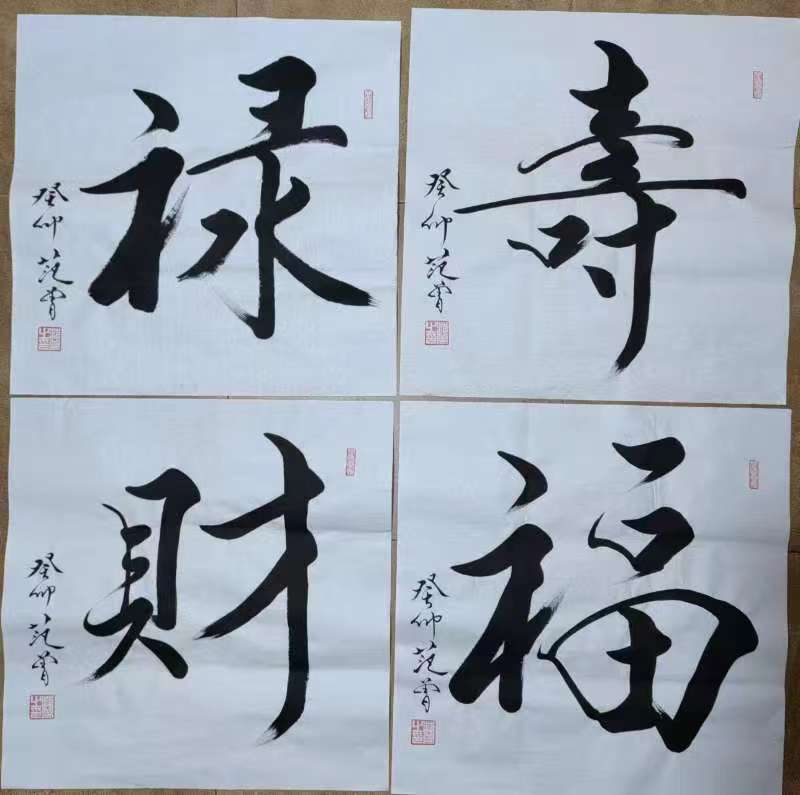 禄
癸卯范曾
壽
癸卯范曾
财
癸卯范曾
福
癸卯范曾